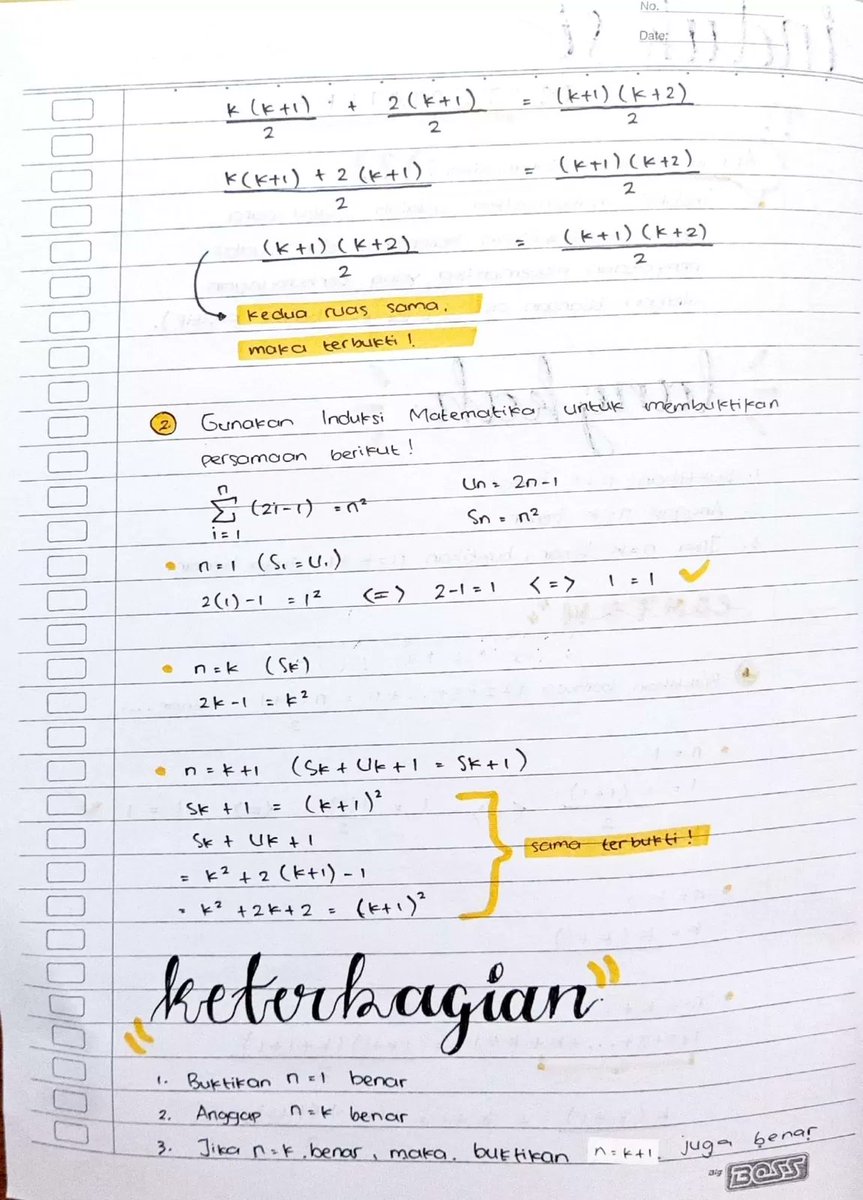 No.
Date:
k(k+1)/2 + 2(k+1)/2 = (k+1)(k+2)/2
k(k+1) + 2(k+1)/2 = (k+1)(k+2)/2
(k+1)(k+2)/2 = (k+1)(k+2)/2
kedua ruas sama.
maka terbukti!
2 Gunakan Induksi Matematika untuk membuktikan
persamaan berikut!
n Σ i=1 (2i-1) = n² Un = 2n-1
Sn = n²
• n=1 (S₁ = U₁)
2(1)-1 = 1² <=> 2-1=1 <=> 1=1 ✓
• n=k (Sk)
2k-1 = k²
• n=k+1 (Sk + Uk+1 = Sk+1)
Sk+1 = (k+1)²
Sk + Uk+1
= k² + 2(k+1)-1
= k² + 2k+2 = (k+1)²
sama terbukti!
"keterbagian"
1. Buktikan n=1 benar
2. Anggap n=k benar
3. Jika n=k benar, maka buktikan n=k+1 juga benar
Big BOSS